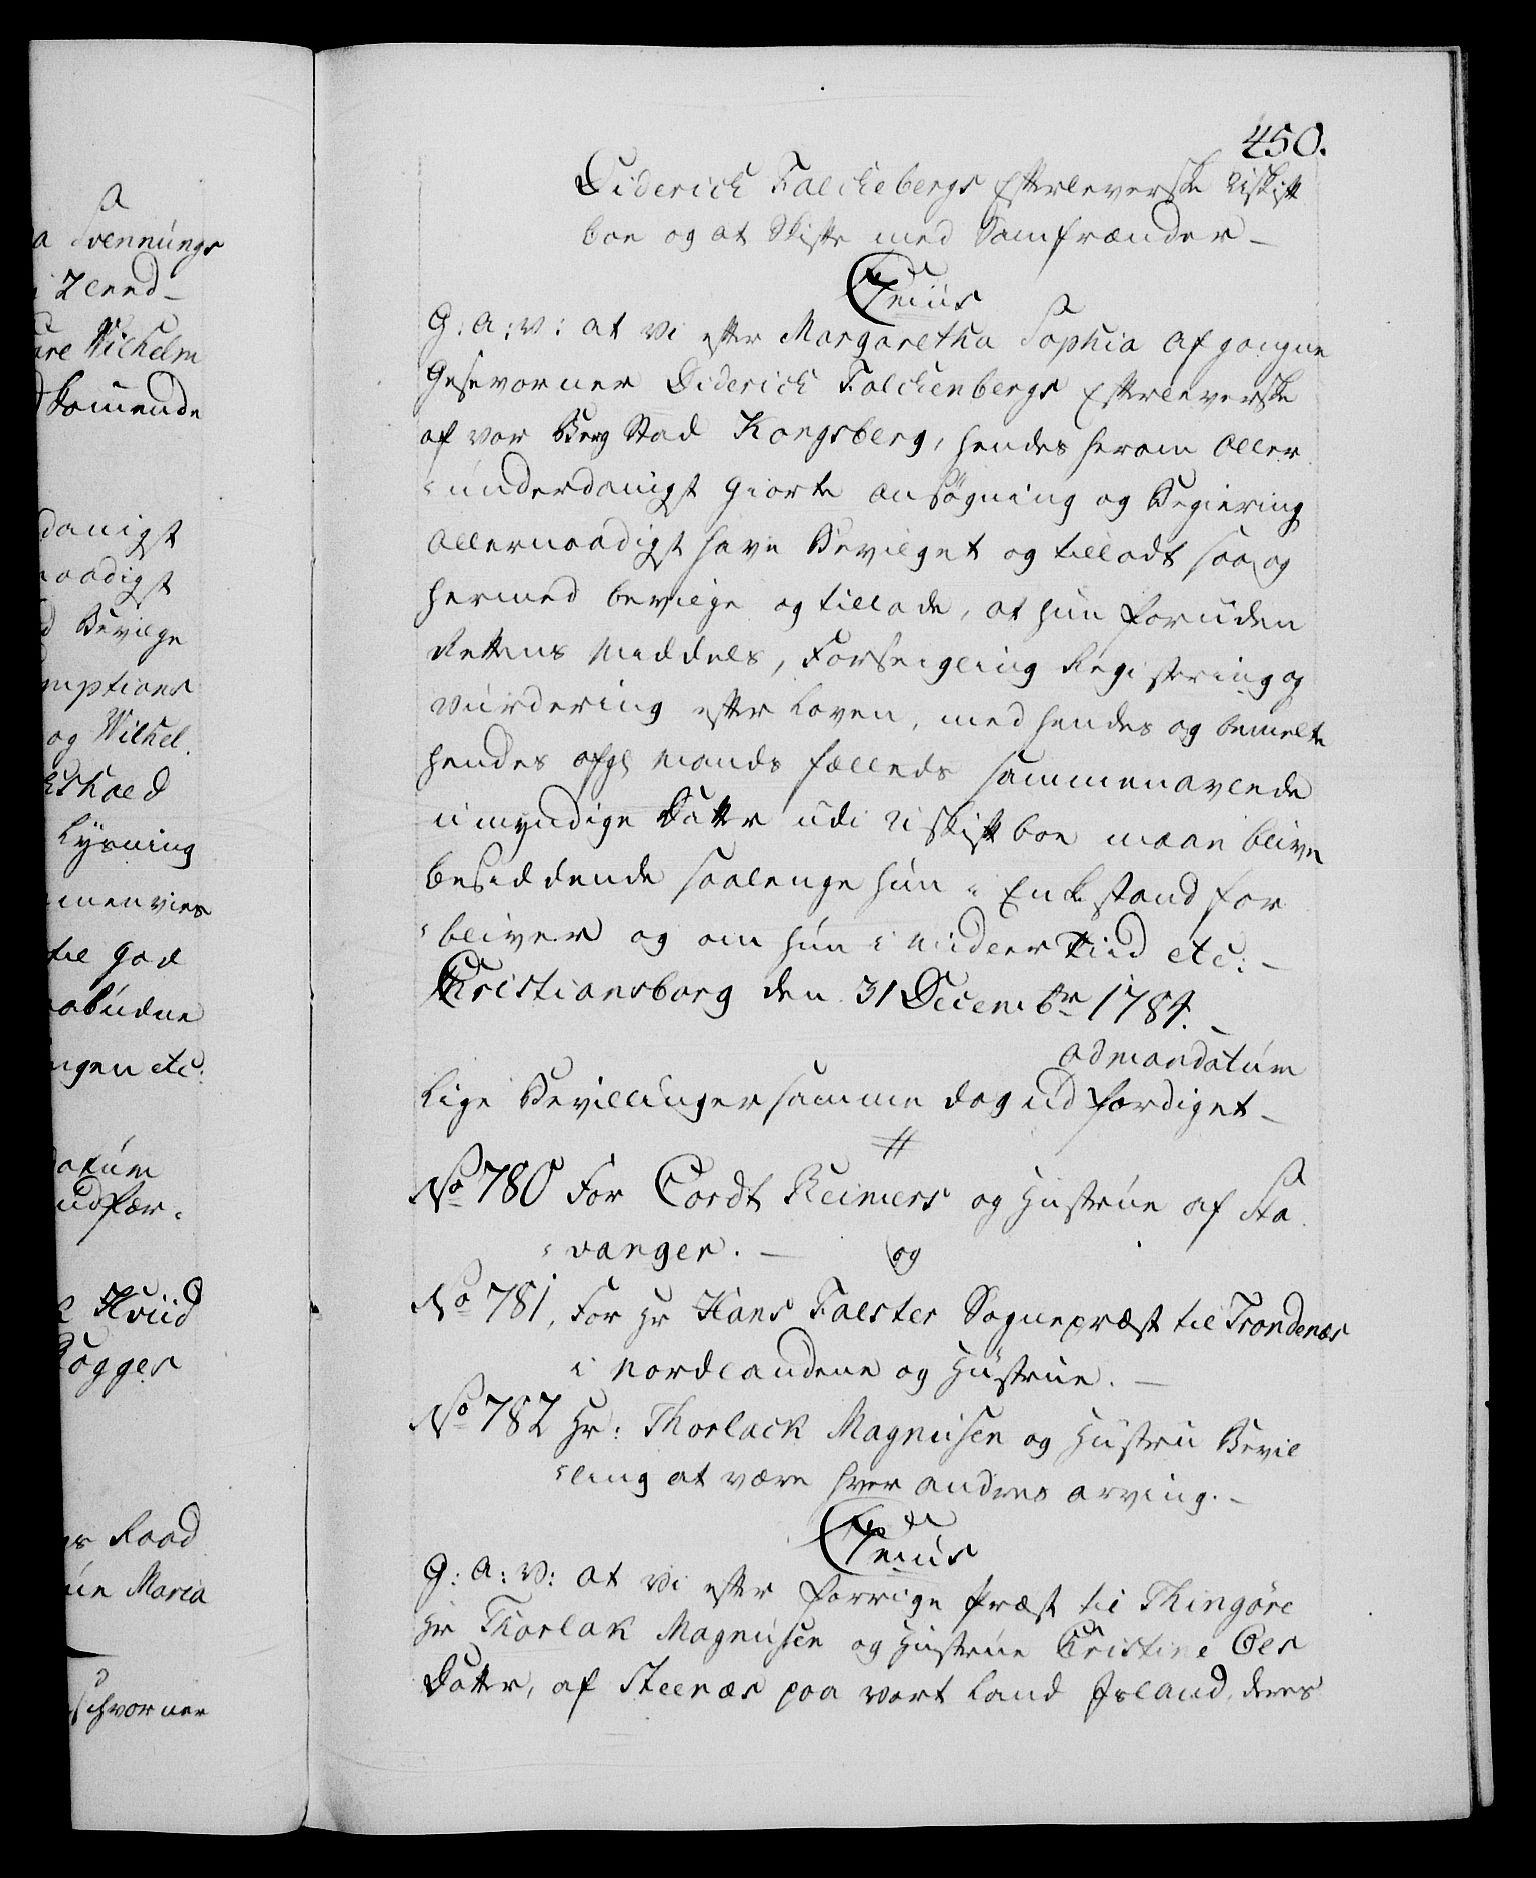 450.
Diderich Falckebergs Efterleverske Uskift
boe og at Skifte med Samfrænder –
C 7nus
G: A: V: at Vi efter Margaretha Sophia afgangne
Gesvorner Diderich Falckenbergs Efterleverske
af vor Berg Stad Kongsberg, hendes herom Aller
underdanigst Giorte ansøgning og Begiering
Allernaadigst have Bevilget og tilladt saa og
hermed bevilge og tillade, at hun foruden
Rettens Middels, Forseigling Registering og
Vurdering efter Loven, med hendes og bemelte
hendes afg: Mands fælleds sammenavlede
umyndige Datter udi Uskift boe maae blive
besiddende saalenge hun i Enke stand for
bliver og om hun i Midler Tiid etc: –
Christiansborg den 31 Decembr 1784. –
ad mandatum
Lige Bevillinger samme dag udfærdiget –
No 780 For Cordt Reimers og Hustrue af Sta
vanger. – og
No 781, For Hr Hans Falster Sognepræst til Trondenæs
i Nordlandene og Hustrue. –
No 782 Hr: Thorlack Magnusen og Hustru Bevil
ling at være hver andres arving. –
C 7nus
G: A: V: at Vi efter forrige Præst til Thingøre
Hr Thorlak Magnusen og Hustrue Christine Oles
Datter, af Steenæs paa vort Land Island, deres
a Svennungs
Wilhelm
kommende
danigst
naadigst
Bevilge
mptions
og Wilhel.
Lysning
menvies
til God
abudne
ngen etc:
datum
udfær-
Hviid
Raad
ue Maria
schvorner